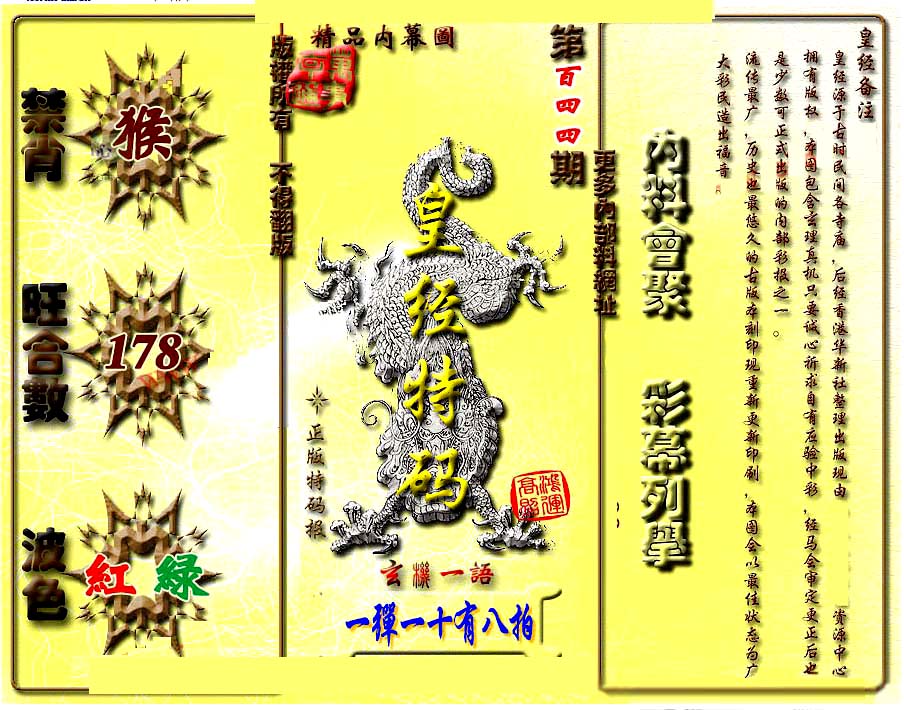 皇经备注
皇经源于古时民间各寺庙，后经香港华新社整理出版现由 资源中心
拥有版权，本图包含玄理真机只要诚心祈求自有应验中彩，经马会审定更正后也
是少数可正式出版的内部彩报之一。
流传最广，历史也最悠久的古版本刻印现重新更新印刷，本图会以最佳状态为广
大彩民造出福音
内料會聚 彩幕列舉
更多内部料網址
第百四四期
精品内幕圖
皇经特码
鴻運高照
正版特码报
玄機一語
一彈一十有八拍
版權所有 不得翻版
禁肖
猴
旺合數
178
波色
紅 綠